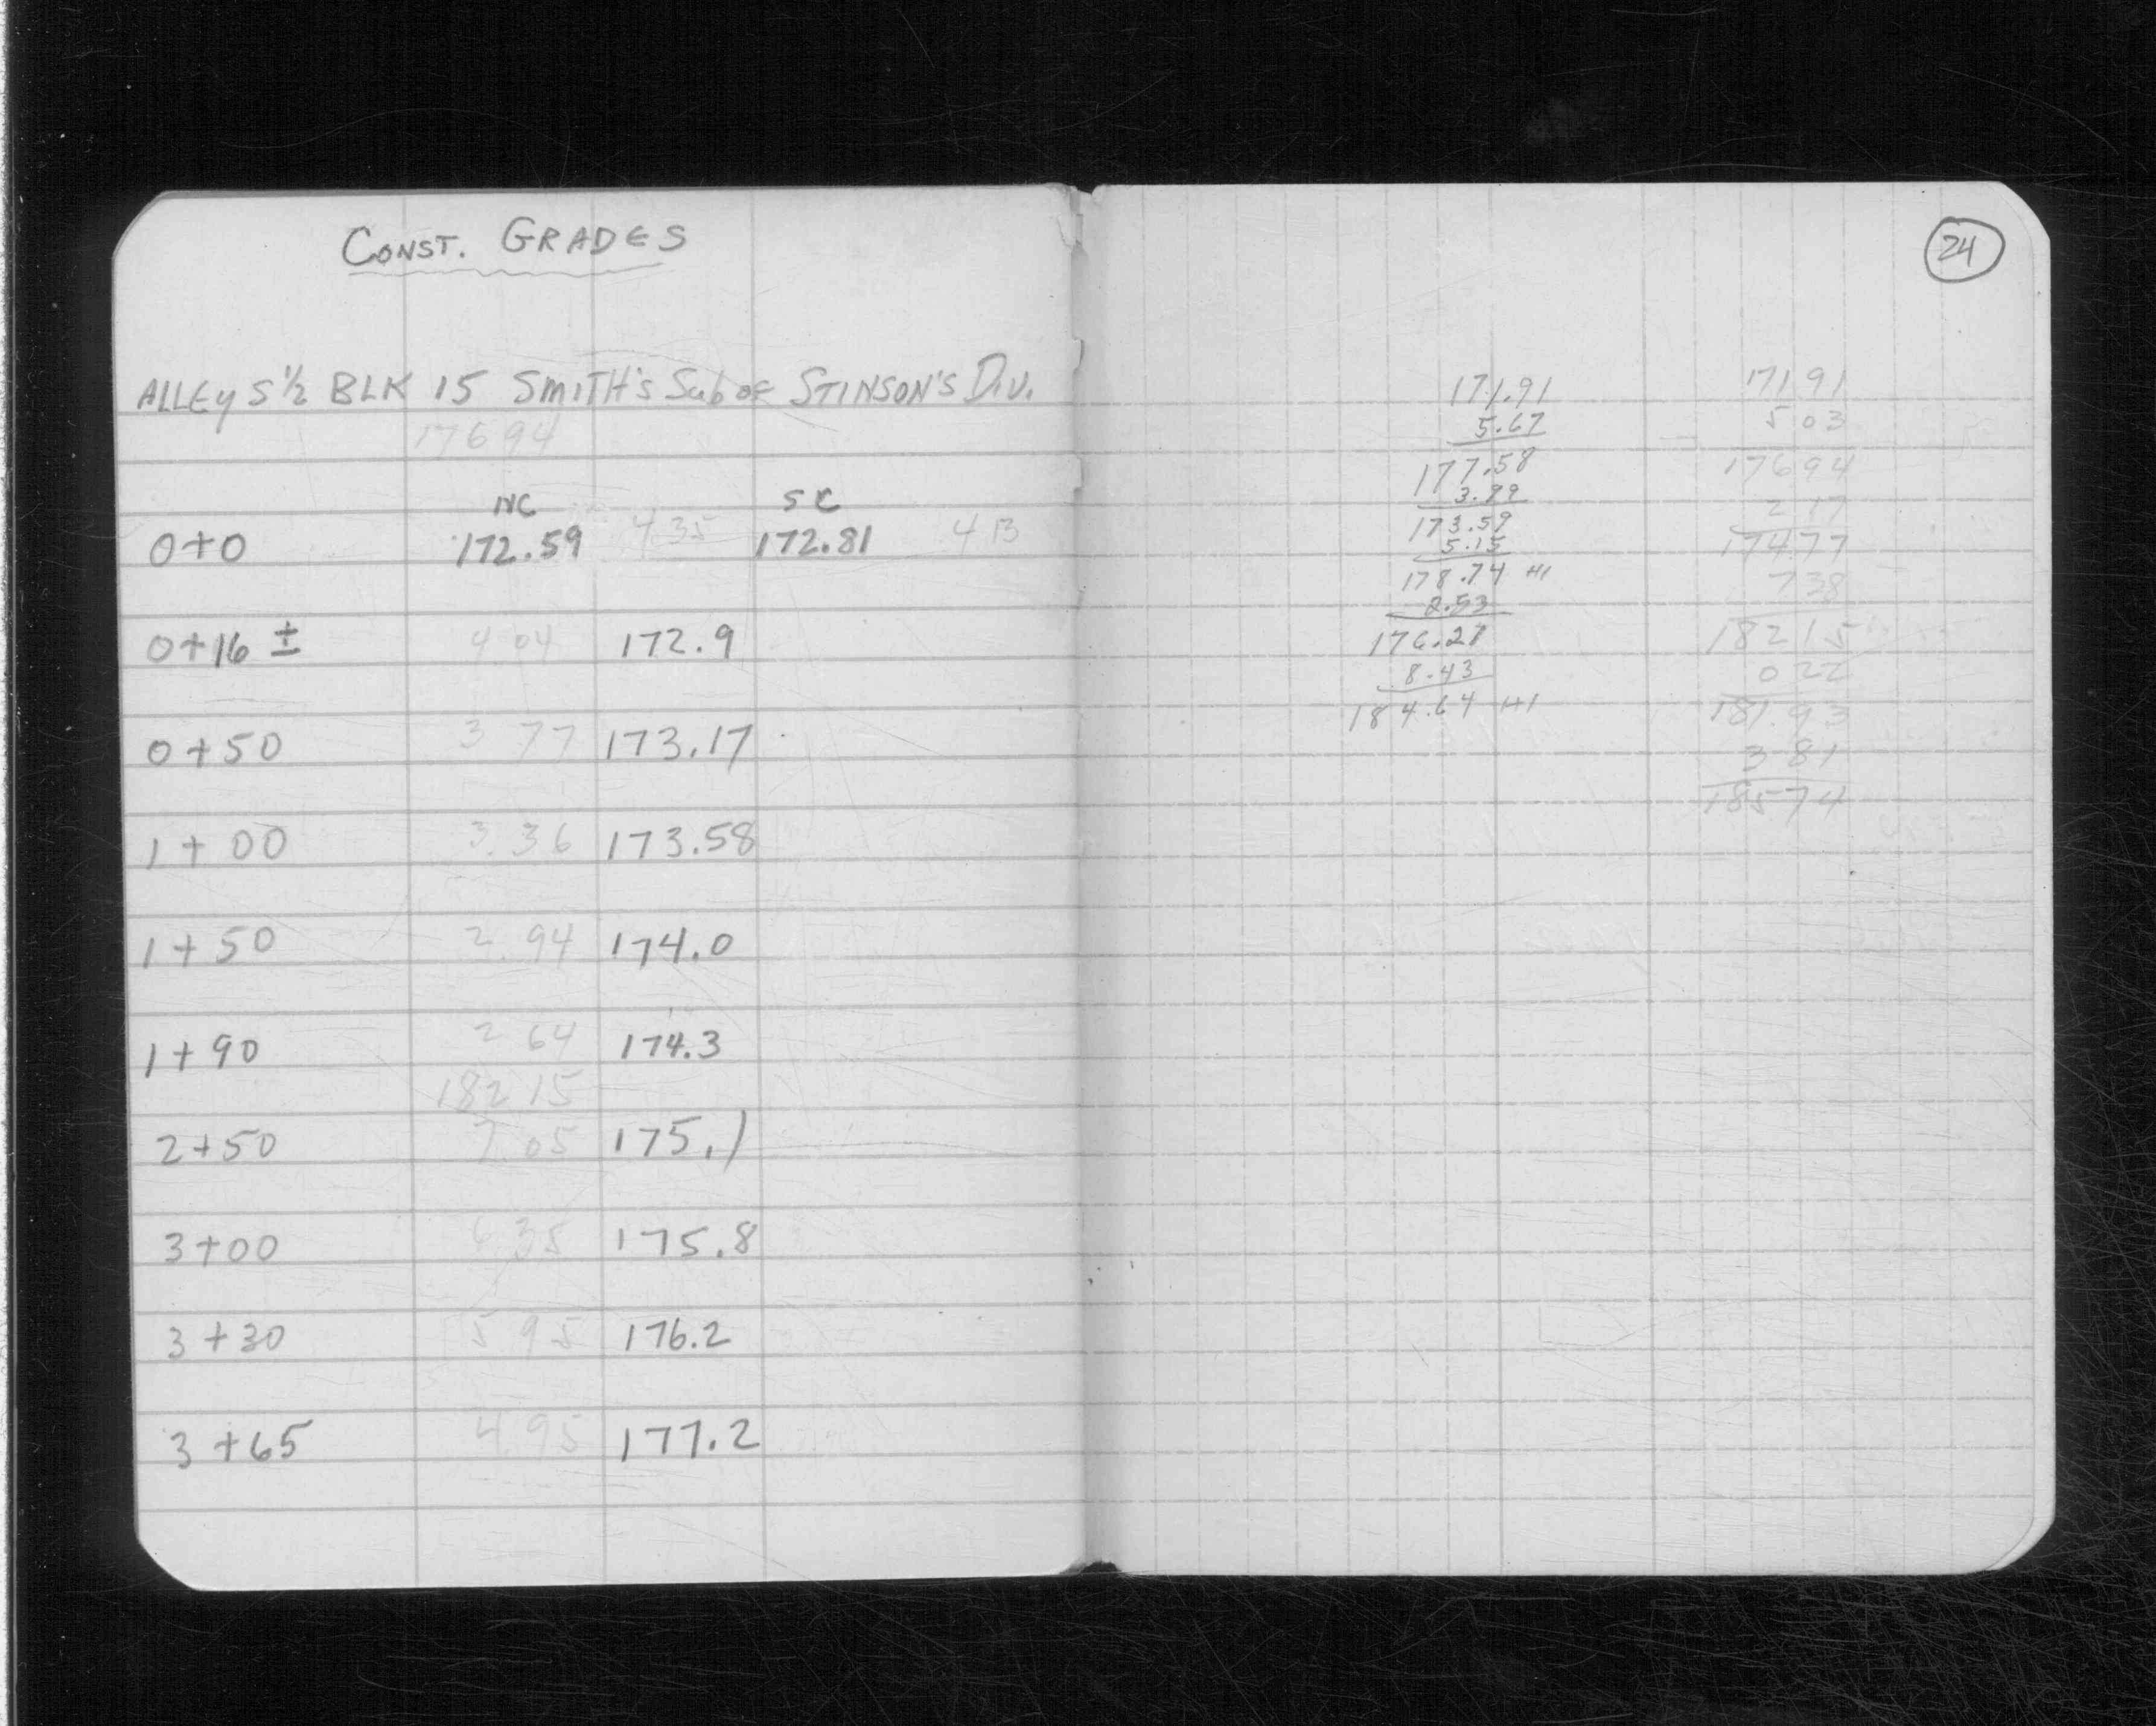 CONST. GRADES
ALLEY S 1/2 BLK 15 SMITH'S Sub OF STINSON'S DIV.
176 94
NC SC
0+0 172.59 4 35 172.81 4 13
0+16 ± 4 04 172.9
0+50 3 77 173.17
1+00 3.36 173.58
1+50 2.94 174.0
1+90 2 64 174.3
182 15
2+50 7.05 175.1
3+00 6 35 175.8
3+30 5 95 176.2
3+65 4.95 177.2
24
171.91
5.67
177.58
3.99
173.59
5.15
178.74 HI
2.53
176.21
8.43
184.64 HI
171 91
5 03
176 94
2 17
174 77
7 38
182 15
0 22
181.93
3 81
185 74